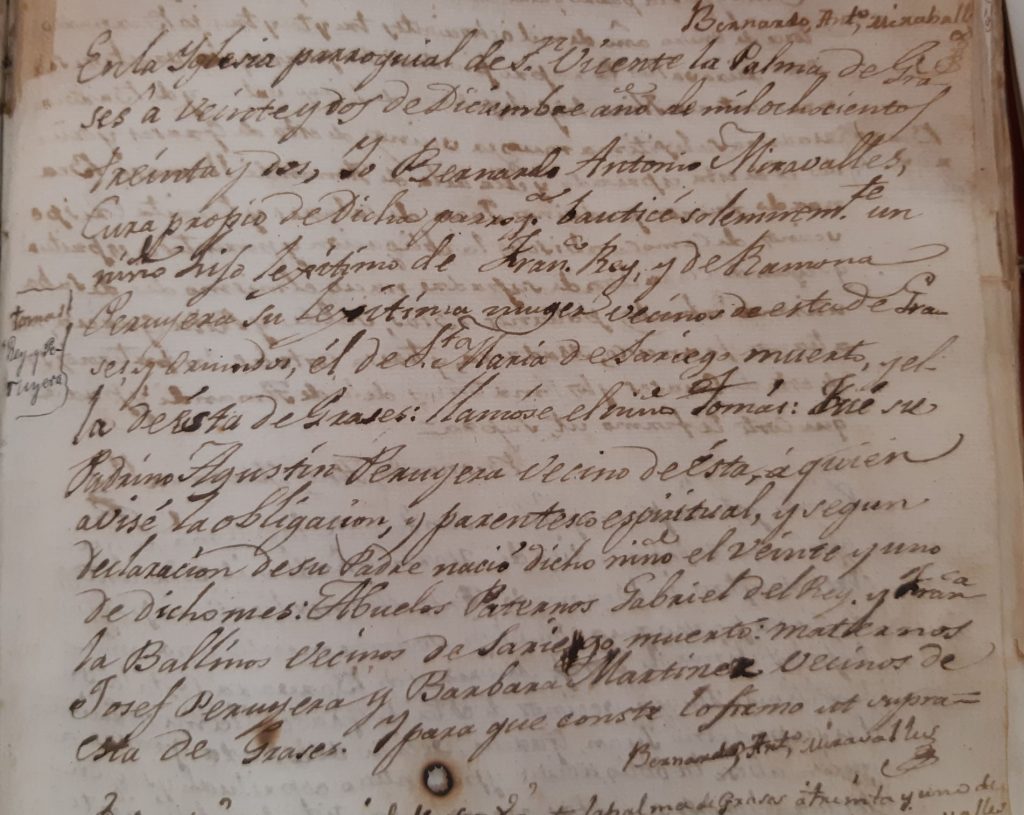 Bernardo, Antº, Miraball
En la Yglesia parroquial de S.n Vicente la Palma, de Gra-
ses a veinte y dos de Diciembre año de mil ochocientos
treinta y dos, Yo Bernardo Antonio Miravalles,
Cura propio de Dicha parroq.al bauticé solemnem.te un
niño hijo lexitimo de Fran.co Rey, y de Ramona
Peruyera su lexitima muger vecinos de esta de Gra-
ses, y oriundos, él de S.ta María de Sariego muerto, y el-
la de ésta de Grases: llamóse el niño Tomás: Fué su
Padrino Agustín Peruyera vecino de ésta, á quien
avisé la obligacion, y parentesco espiritual, y segun
declaracion de su Padre nació dicho niño el veinte y uno
de dicho mes: Abuelos Paternos Gabriel del Rey, y Fran.ca
la Ballina vecinos de Sariego muerto: maternos
Josef Peruyera y Barbara Martinez vecinos de
esta de Grases. Y para que conste lo firmo ut supra=
Bernardo, Antº, Miravalles
Tomas
Rey y Pe-
ruyera
la palma de Grases á treinta y uno de